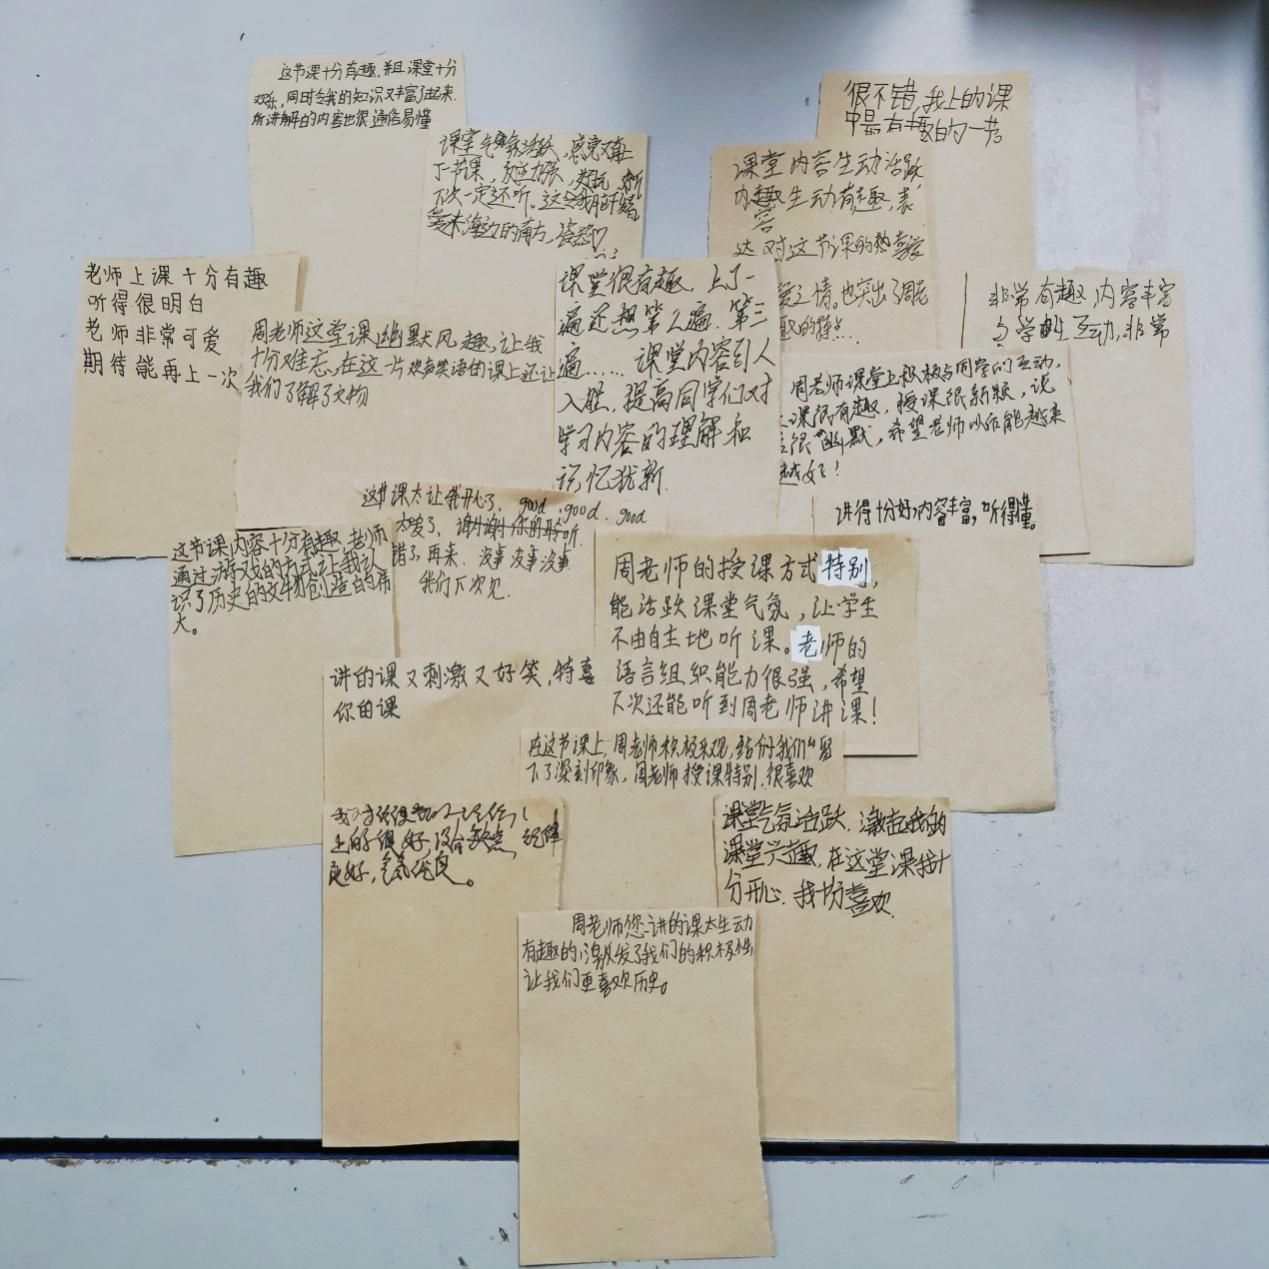 这节课十分有趣，并且课堂十分
欢乐，同时令我的知识又丰富了起来.
所讲解的内容也很通俗易懂
很不错，我上的课
中最有趣的一节
课堂气氛活跃，感觉又上
了一节课，
下次一定还听。这
爱来海边的南方，
课堂内容生动活跃
内趣生动有趣，表
容
达对这节课的热爱
爱之情。也突出了周老
趣的特点...
老师上课十分有趣
听得很明白
老师非常可爱
期待能再上一次
周老师这堂课幽默风趣，让我
十分难忘，在这一片欢声笑语的课上还让
我们了解了文物
课堂很有趣，上了一
遍还想第二遍、第三
遍……课堂内容引人
入胜，提高同学们对
学习内容的理解和
记忆犹新.
非常有趣，内容丰富
与学生互动，非常
周老师课堂上积极与同学们互动，
课很有趣，授课很新颖，说
很“幽默，希望老师以后能越来
越好！
讲得十分好，内容丰富，听得懂。
这节课太让我开心了，good，good，good
太爱了，谢谢你的聆听
错了，再来，没事没事没事
我们下次见.
这节课内容十分有趣，老师
通过游戏的方式让我认
识了历史的文物创造的伟
大。
周老师的授课方式特别，
能活跃课堂气氛，让学生
不由自主地听课。老师的
语言组织能力很强，希望
下次还能听到周老师讲课！
讲的课又刺激又好笑，特喜
你的课
在这节课上，周老师积极乐观，给份我们“留
下了深刻印象，周老师授课特别，很喜欢
上的很好，没有缺点，纪律
良好，气氛优良。
课堂气氛活跃，激起我的
课堂兴趣，在这堂课我十
分开心，我十分喜欢
周老师您讲的课太生动
有趣的，激发了我们的积极性
让我们更喜欢历史。